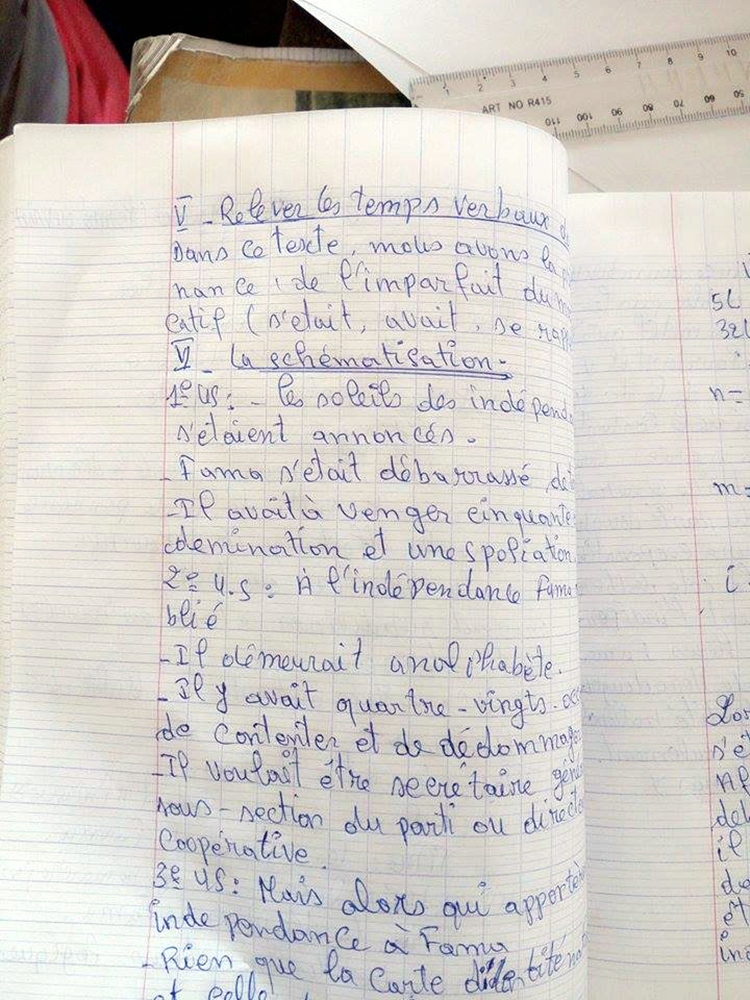 1 2 3 4 5 6 7 8 9 10
ART NO R415
110 100 90 80 70 60 50
V - Relever les temps verbaux d
Dans ce texte, nous avons la
nance de l'imparfait du
catif (s'était, avait, se
VI - La schématisation.
1e US: - les soleils des indépend
s'étaient annoncés.
- Fama s'était débarrassé de
- Il avait à venger cinquante
domination et une spoliation
2e U.S: À l'indépendance Fama
blié
- Il démeurait analphabète.
- Il y avait quartre-vingts
de contenter et de dédommager
- Il voulait être secrétaire géné
sous-section du parti ou directe
Coopérative.
3e US: Mais alors qui apportèr
indépendance à Fama
- Rien que la carte d'identité nat
et celle
5L
32L
n=
m=
i
Lor
s'ét
Al
del
il
do
ét
ind